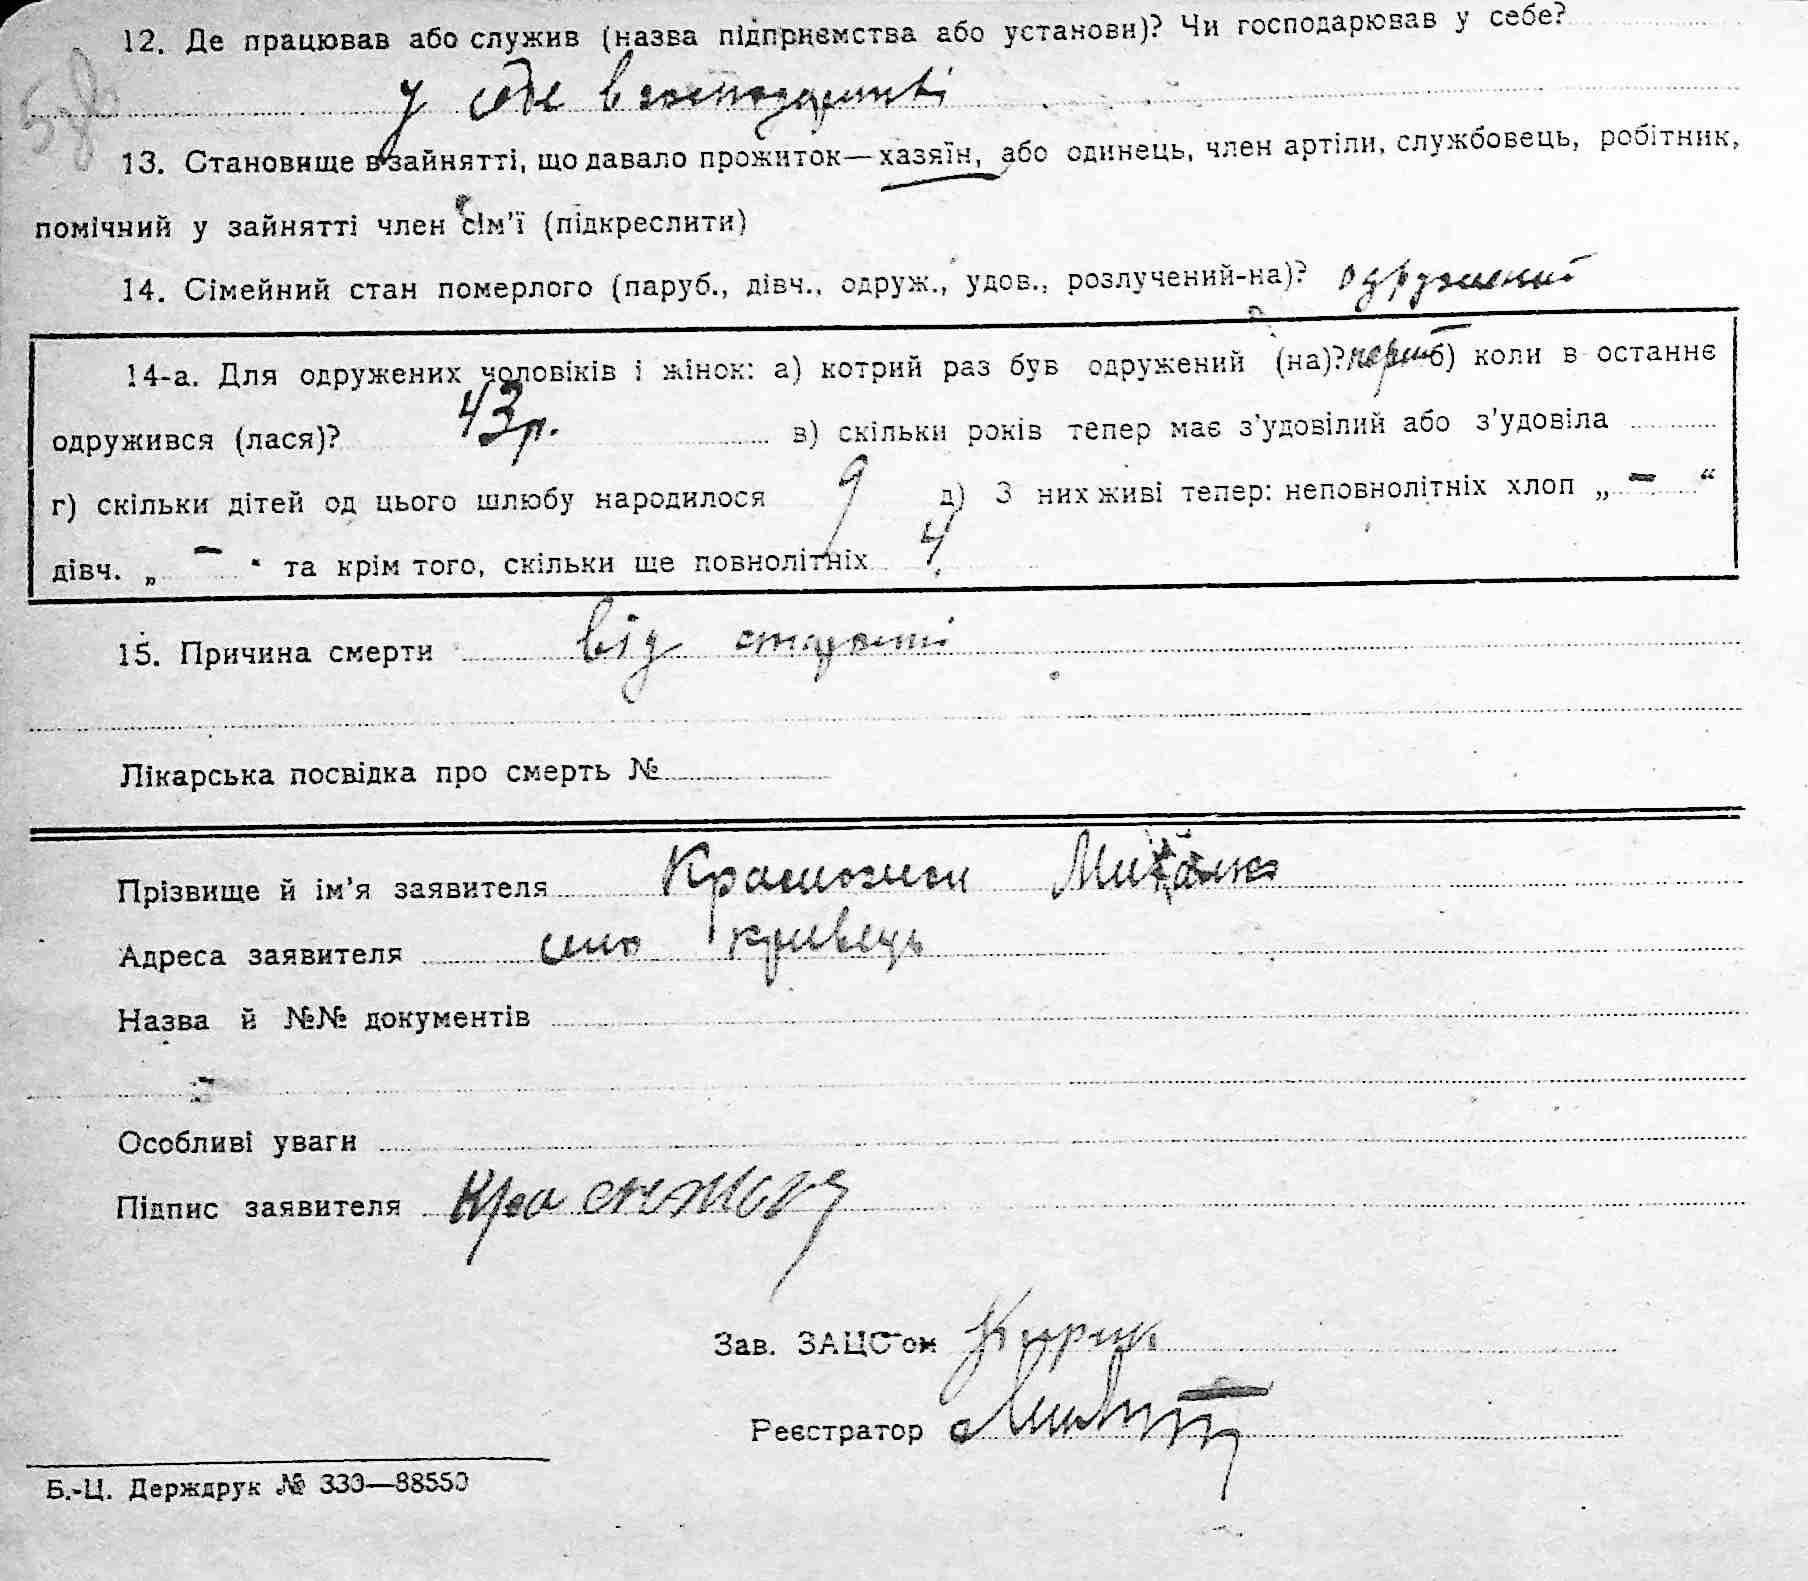 12. Де працював або служив (назва підприємства або установи)? Чи господарював у себе?
у себе в господарстві
13. Становище в зайнятті, що давало прожиток—хазяїн, або одинець, член артіли, службовець, робітник,
помічний у зайнятті член сім'ї (підкреслити)
14. Сімейний стан померлого (паруб., дівч., одруж., удов., розлучений-на)? одружений
14-а. Для одружених чоловіків і жінок: а) котрий раз був одружений (на)? перш б) коли в останнє
одружився (лася)? 43 р. в) скільки років тепер має з'удовілий або з'удовіла
г) скільки дітей од цього шлюбу народилося 9 д) З них живі тепер: неповнолітніх хлоп „ — “
дівч. „ — " та крім того, скільки ще повнолітніх 4
15. Причина смерти від старости
Лікарська посвідка про смерть №
Прізвище й ім'я заявителя
Адреса заявителя село Кривець
Назва й №№ документів
Особливі уваги
Підпис заявителя
Зав. ЗАЦС'ом
Реєстратор
Б.-Ц. Держдрук № 330—88550